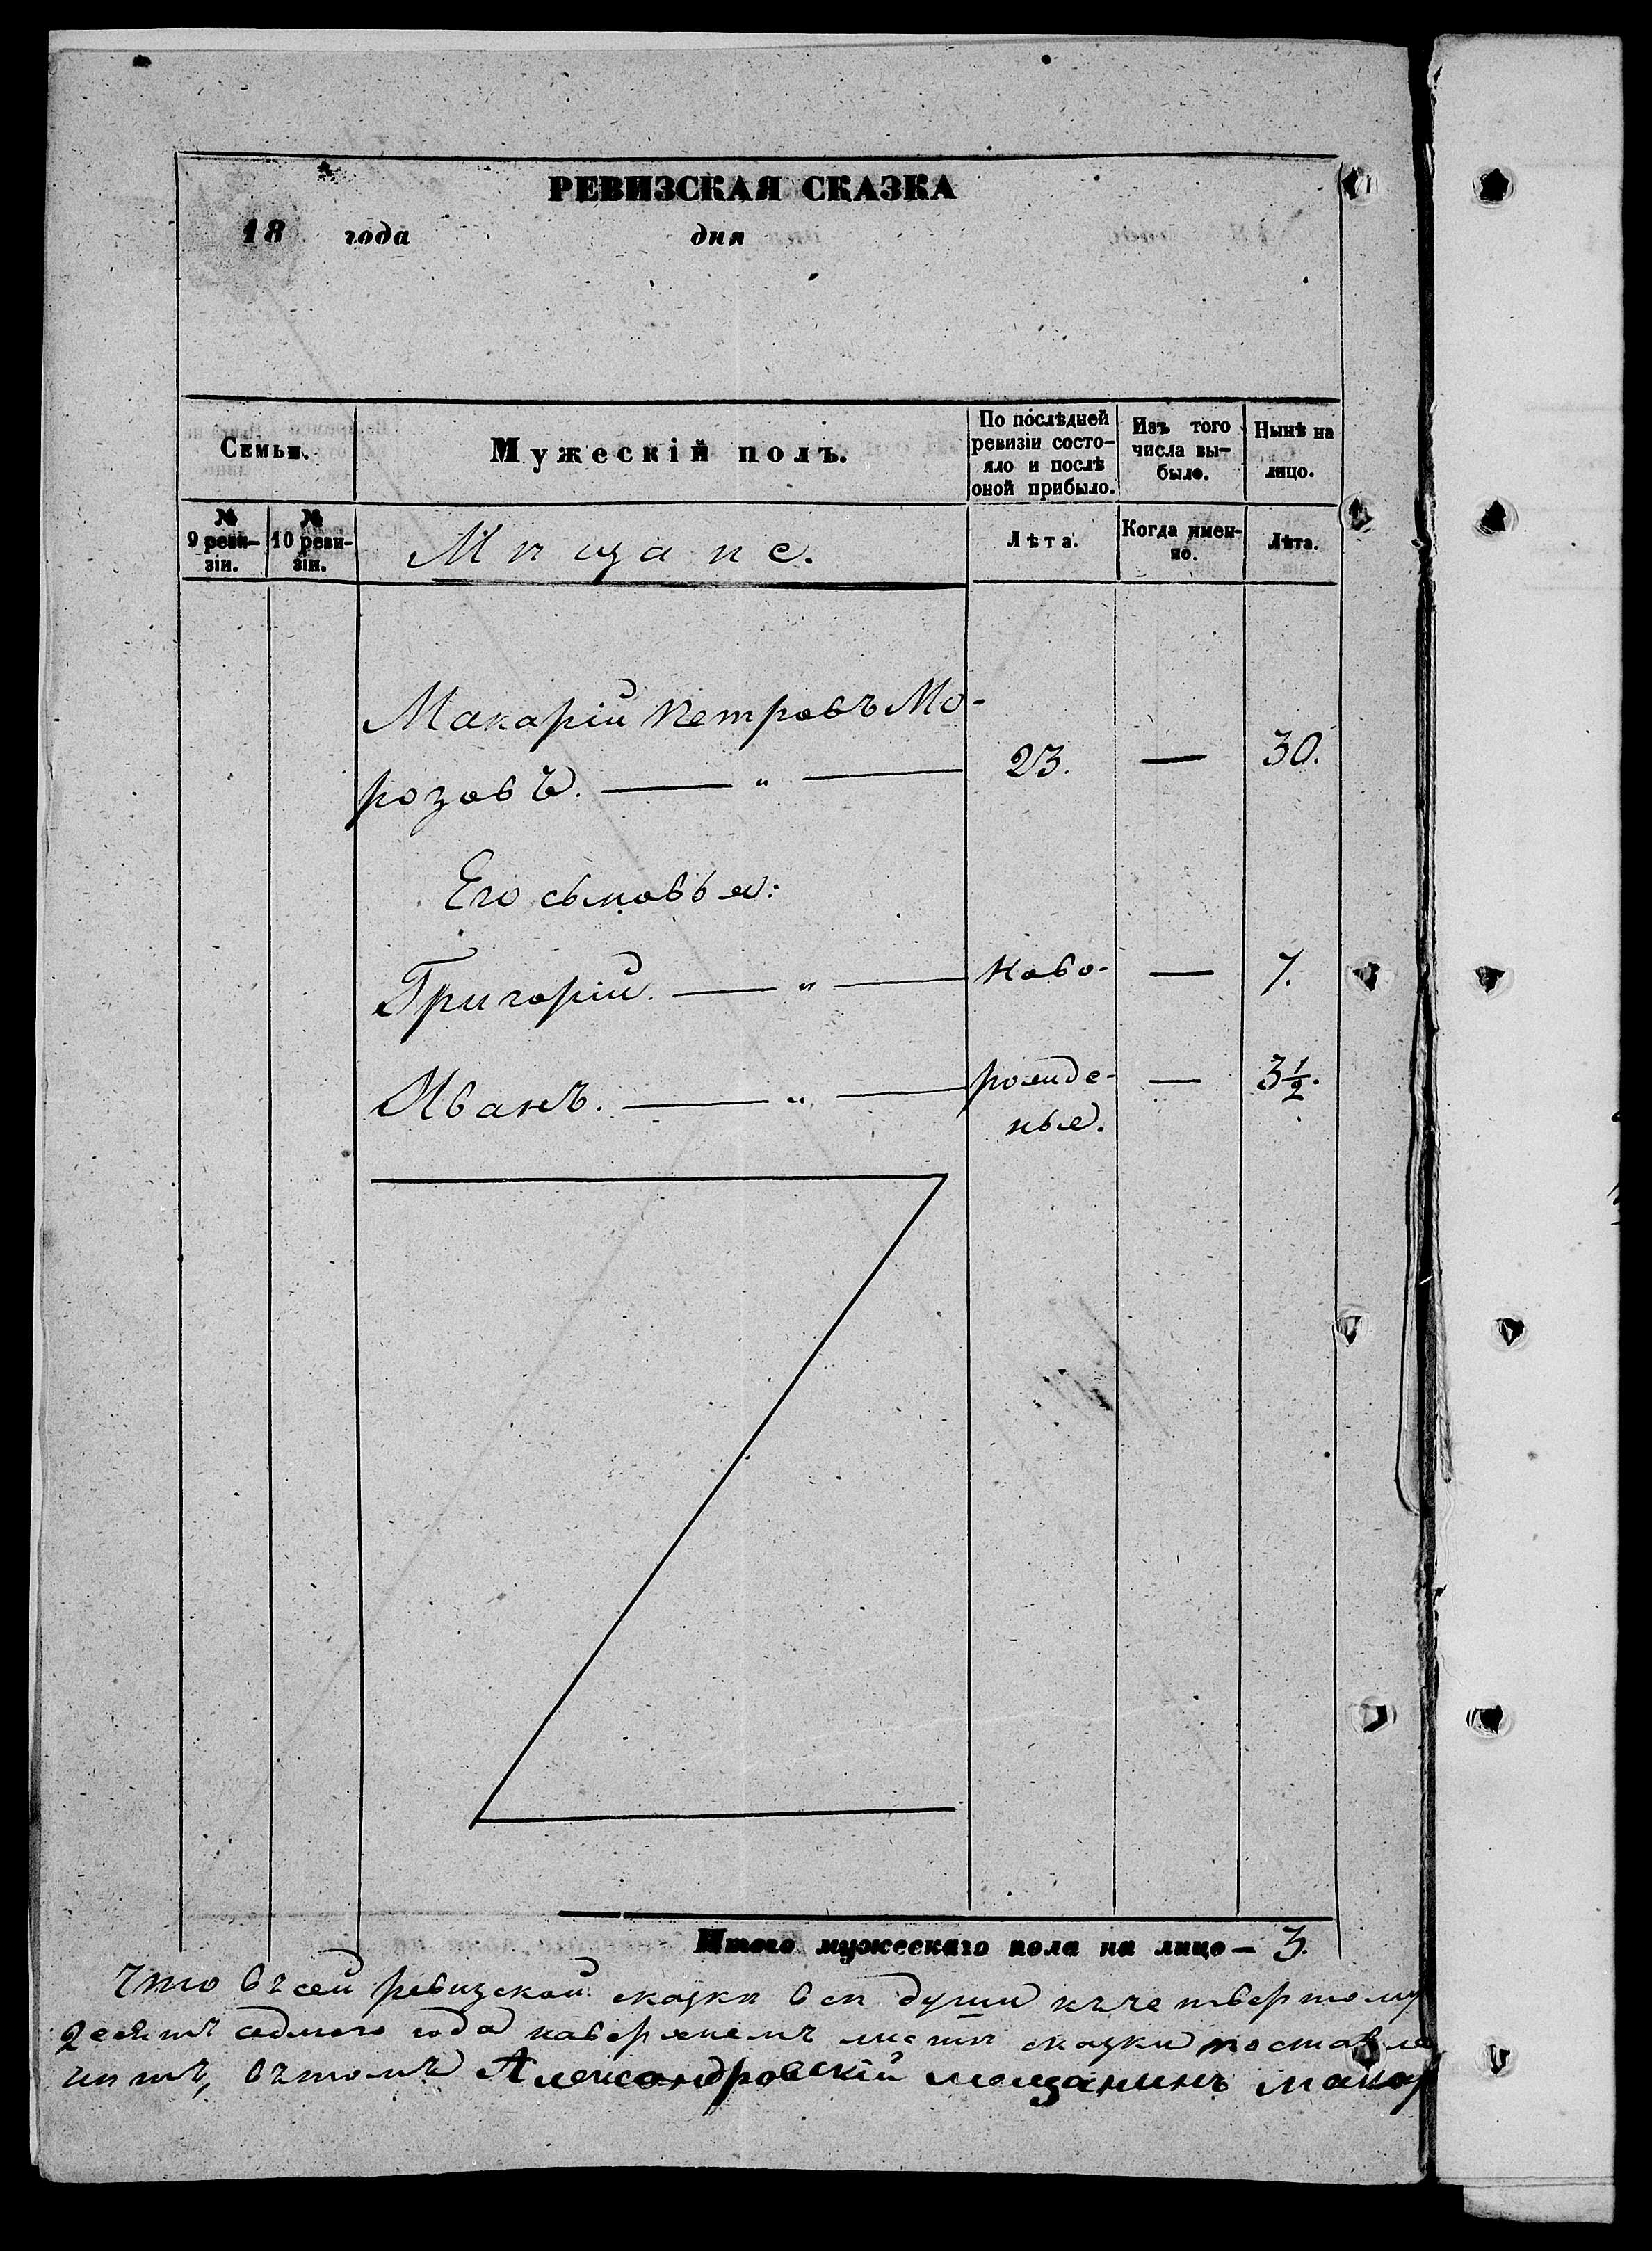 РЕВИЗСКАЯ СКАЗКА
18 года дня
Семьи.
Мужескій полъ.
По послѣдней
ревизіи состо-
яло и послѣ
оной прибыло.
Изъ того
числа вы-
было.
Нынѣ на
лицо.
№
9 реви-
зіи.
№
10 реви-
зіи.
Мѣщане.
Лѣта.
Когда имен-
но.
Лѣта.
Макарій Петровъ Мо-
розовъ. — „ — 23. — 30.
Его сыновья:
Григорій. — „ — Ново- — 7.
Иванъ. — „ — рожде- — 3½.
ные.
Итого мужескаго пола на лицо — 3.
Что въ сей ревизской сказкѣ всѣ души къ четвертому
десятъ седмого года на мѣстѣ сказки
нѣтъ, въ томъ Александровскій мещанинъ Макар